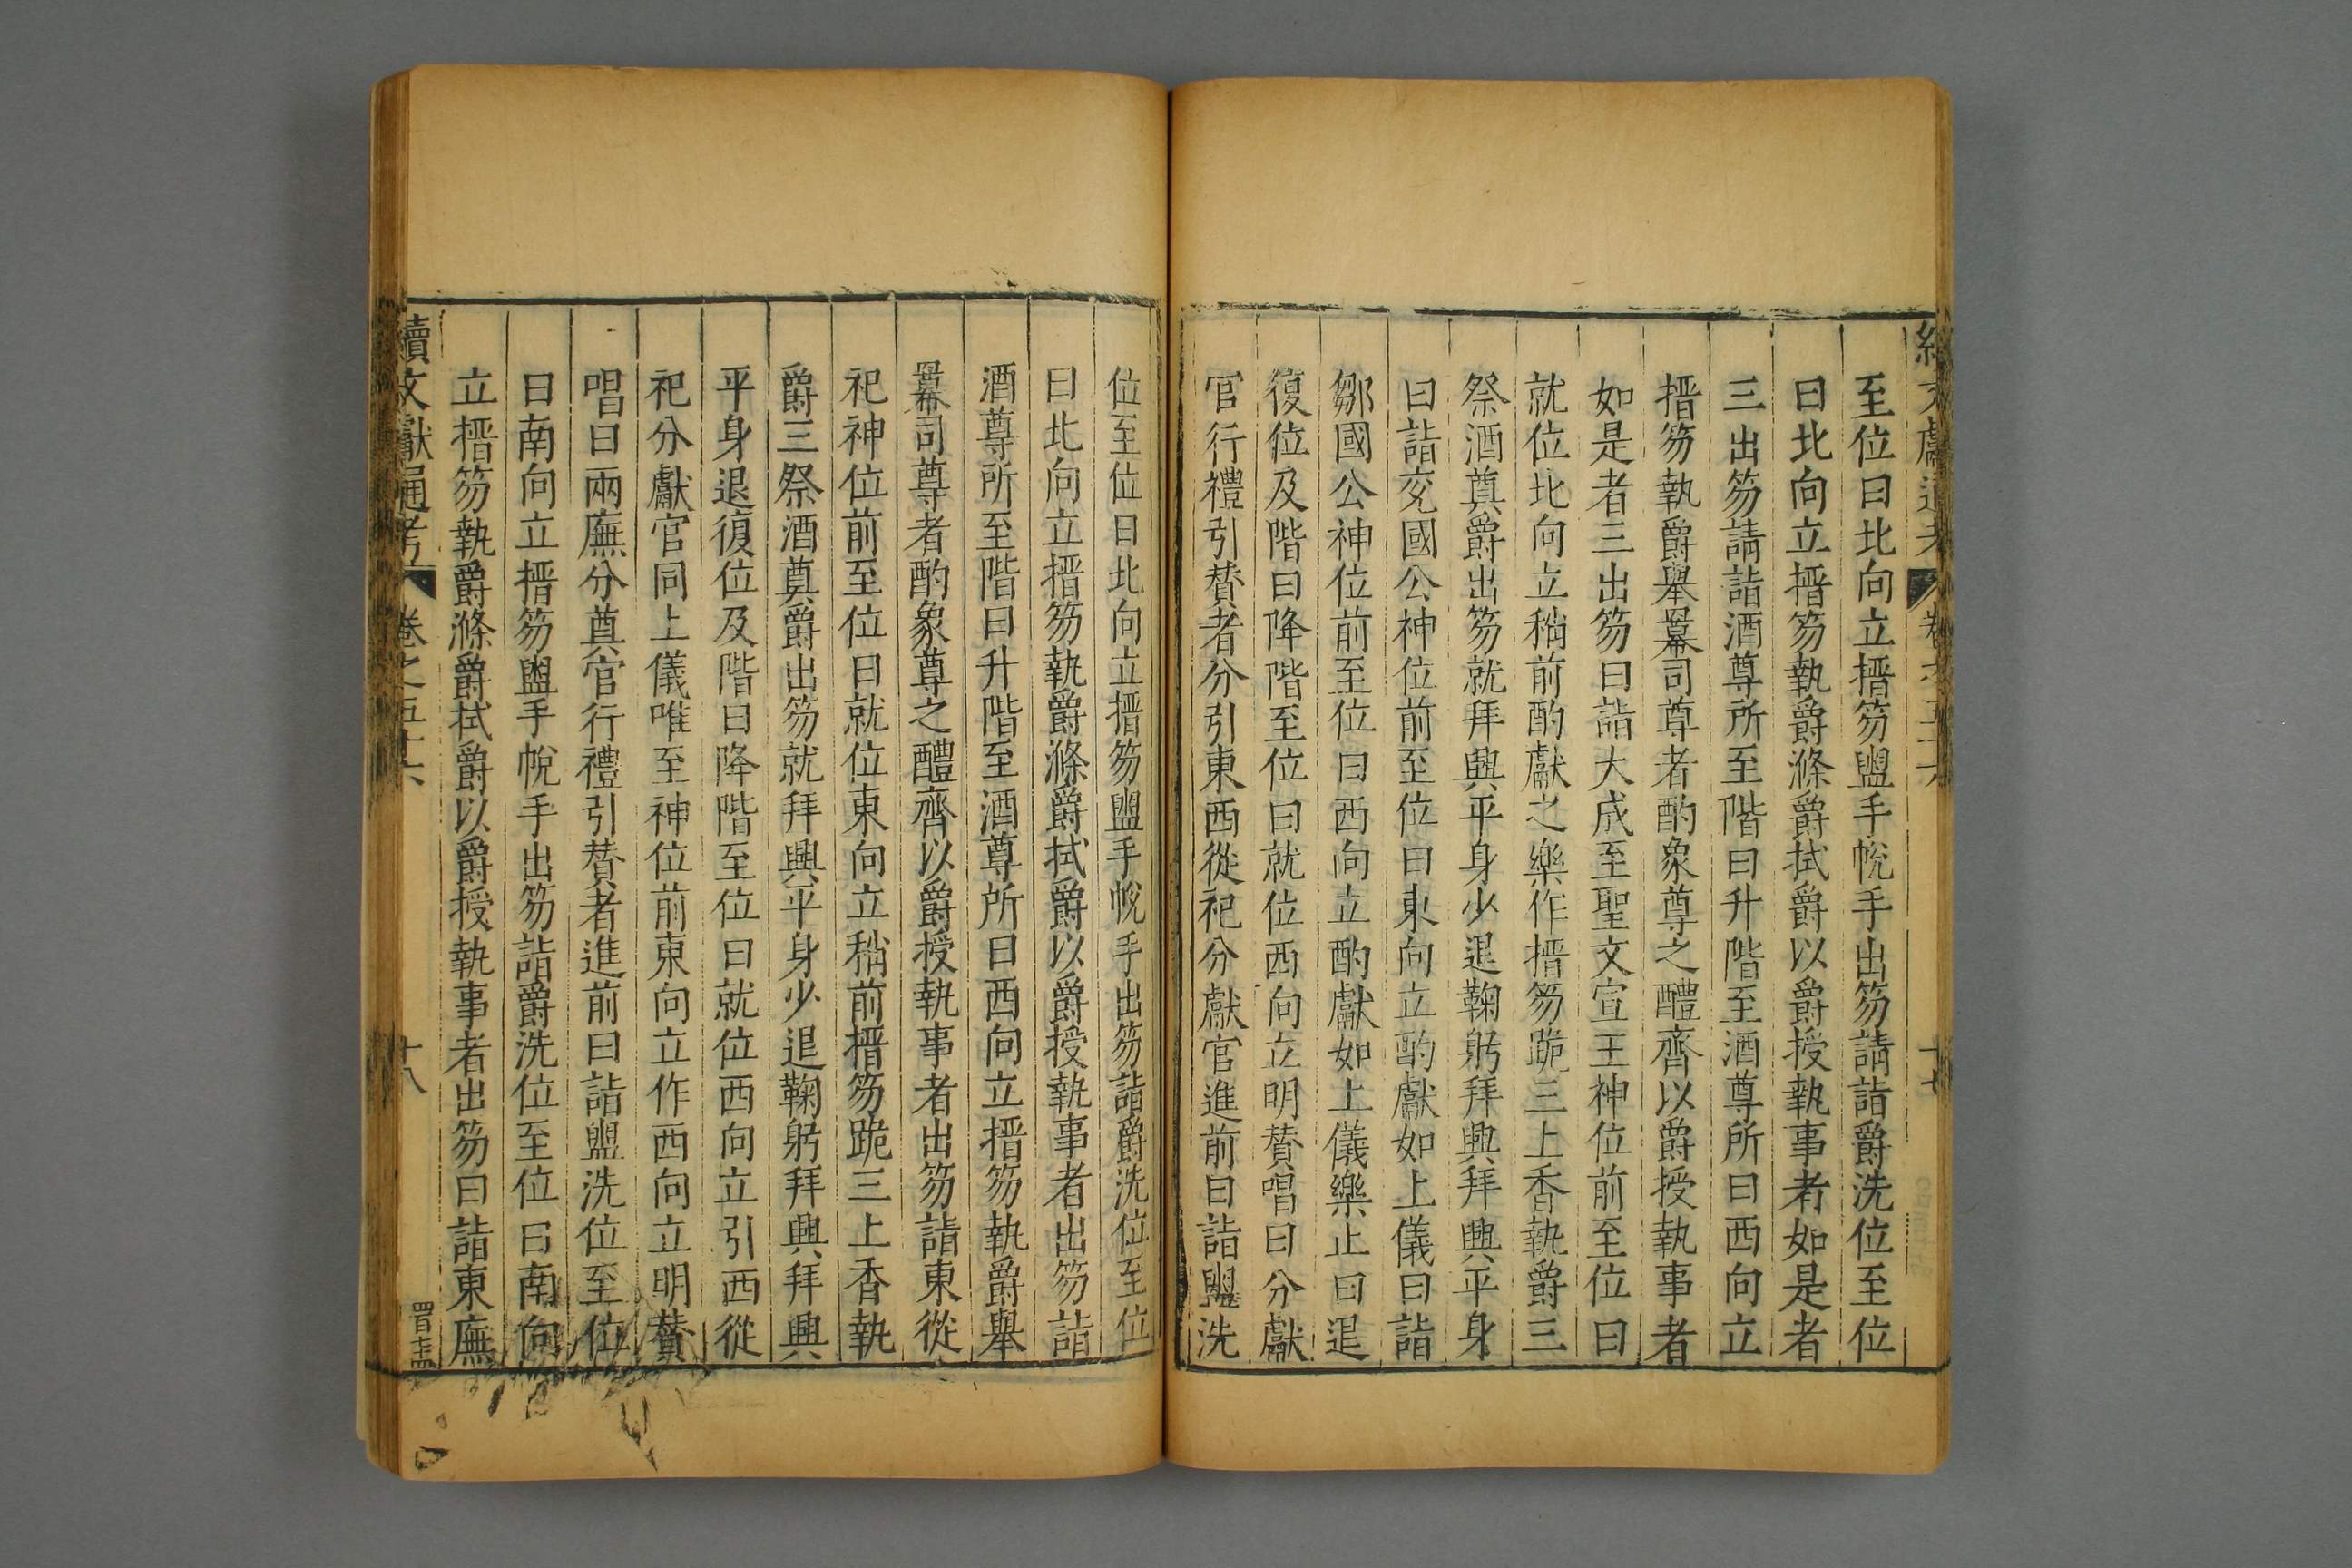 至位曰北向立搢笏盥手帨手出笏請詣爵洗位至位
曰北向立搢笏執爵滌爵拭爵以爵授執事者如是者
三出笏請詣酒尊所至階曰升階至酒尊所曰西向立
搢笏執爵舉冪司尊者酌象尊之醴齊以爵授執事者
如是者三出笏曰詣大成至聖文宣王神位前至位曰
就位北向立稍前酌獻之樂作搢笏跪三上香執爵三
祭酒奠爵出笏就拜興平身少退鞠躬拜興拜興平身
曰詣兗國公神位前至位曰東向立酌獻如上儀曰詣
鄒國公神位前至位曰西向立酌獻如上儀樂止曰退
復位及階曰降階至位曰就位西向立明贊唱曰分獻
官行禮引贊者分引東西從祀分獻官進前曰詣盥洗
位至位曰北向立搢笏盥手帨手出笏詣爵洗位至位
曰北向立搢笏執爵滌爵拭爵以爵授執事者出笏詣
酒尊所至階曰升階至酒尊所曰西向立搢笏執爵舉
冪司尊者酌象尊之醴齊以爵授執事者出笏詣東從
祀神位前至位曰就位東向立稍前搢笏跪三上香執
爵三祭酒奠爵出笏就拜興平身少退鞠躬拜興拜興
平身退復位及階曰降階至位曰就位西向立引西從
祀分獻官同上儀唯至神位前東向立作西向立明贊
唱曰兩廡分奠官行禮引贊者進前曰詣盥洗位至位
曰南向立搢笏盥手帨手出笏詣爵洗位至位曰南向
立搢笏執爵滌爵拭爵以爵授執事者出笏曰詣東廡
續文獻通考 卷之五十六 十八